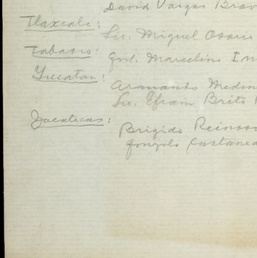 David Vargas Brav
Tlaxcala:
Lic. Miguel Osorio
Tabasco: Gral. Marcelino In
Yucatan:
Armando Medin
Lic. Efrain Brito
Zacatecas:
Brigido Reinoso
Gonzalo Castaned